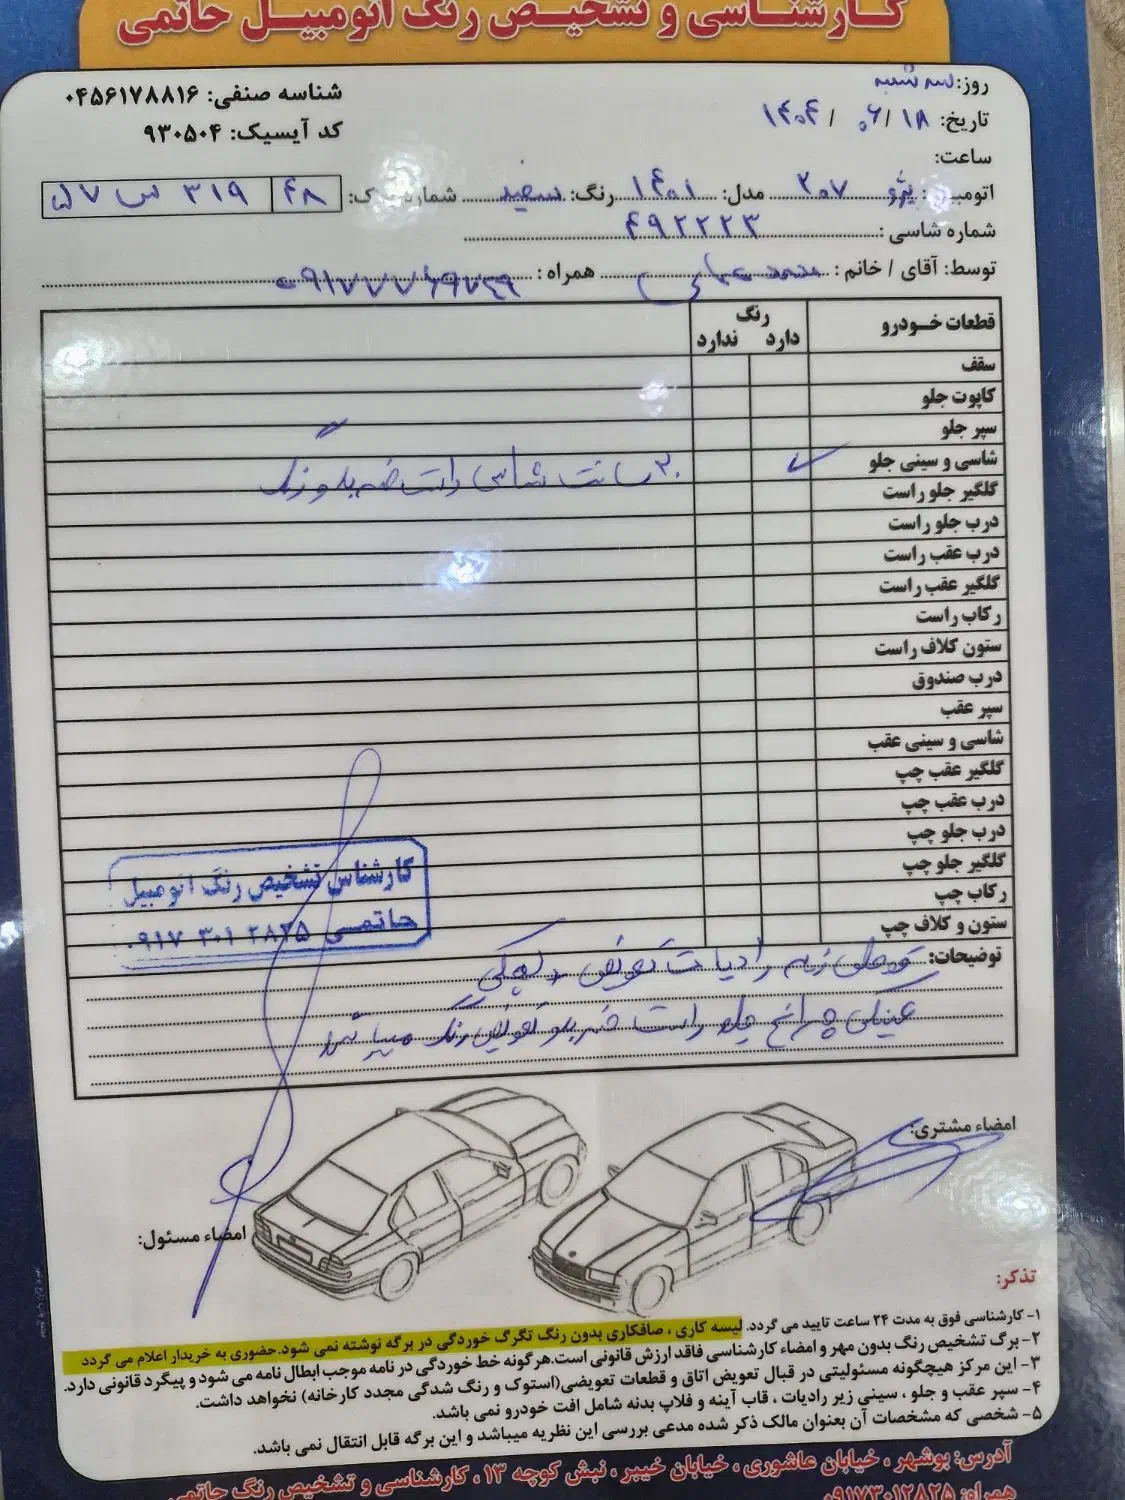 کارشناسی و تشخیص رنگ اتومبیل حاتمی
روز: سه شنبه
شناسه صنفی: ۰۴۵۶۱۷۸۸۱۶
تاریخ: ۱۴۰۴/۰۶/۱۸
کد آیسیک: ۹۳۰۵۰۴
ساعت:
اتومبیل: پژو ۲۰۷ مدل: ۱۴۰۱ رنگ: سفید شماره پلاک: ۴۸ ۳۱۹ س ۵۷
شماره شاسی: ۴۹۲۲۲۳
توسط: آقای / خانم: محمد همراه:
قطعات خودرو
رنگ
دارد ندارد
سقف
کاپوت جلو
سپر جلو
شاسی و سینی جلو ✓ ۳۰ سانت شاسی راست ضربه و رنگ
گلگیر جلو راست
درب جلو راست
درب عقب راست
گلگیر عقب راست
رکاب راست
ستون کلاف راست
درب صندوق
سپر عقب
شاسی و سینی عقب
گلگیر عقب چپ
درب عقب چپ
درب جلو چپ
گلگیر جلو چپ
رکاب چپ
ستون و کلاف چپ
کارشناس تشخیص رنگ اتومبیل
حاتمی ۰۹۱۷ ۳۰۱ ۲۸۲۵
توضیحات: رادیات تعویض
عینکی چراغ جلو راست ضربه و تعویض رنگ میباشد
امضاء مشتری:
امضاء مسئول:
تذکر:
۱- کارشناسی فوق به مدت ۲۴ ساعت تایید می گردد. لیسه کاری ، صافکاری بدون رنگ تگرگ خوردگی در برگه نوشته نمی شود. حضوری به خریدار اعلام می گردد
۲- برگ تشخیص رنگ بدون مهر و امضاء کارشناسی فاقد ارزش قانونی است. هرگونه خط خوردگی در نامه موجب ابطال نامه می شود و پیگرد قانونی دارد.
۳- این مرکز هیچگونه مسئولیتی در قبال تعویض اتاق و قطعات تعویضی (استوک و رنگ شدگی مجدد کارخانه) نخواهد داشت.
۴- سپر عقب و جلو ، سینی زیر رادیات ، قاب آینه و فلاپ بدنه شامل افت خودرو نمی باشد.
۵- شخصی که مشخصات آن بعنوان مالک ذکر شده مدعی بررسی این نظریه میباشد و این برگه قابل انتقال نمی باشد.
آدرس: بوشهر ، خیابان عاشوری ، خیابان خیبر ، نبش کوچه ۱۳ ، کارشناسی و تشخیص رنگ حاتمی
همراه: ۰۹۱۷۳۰۱۲۸۲۵